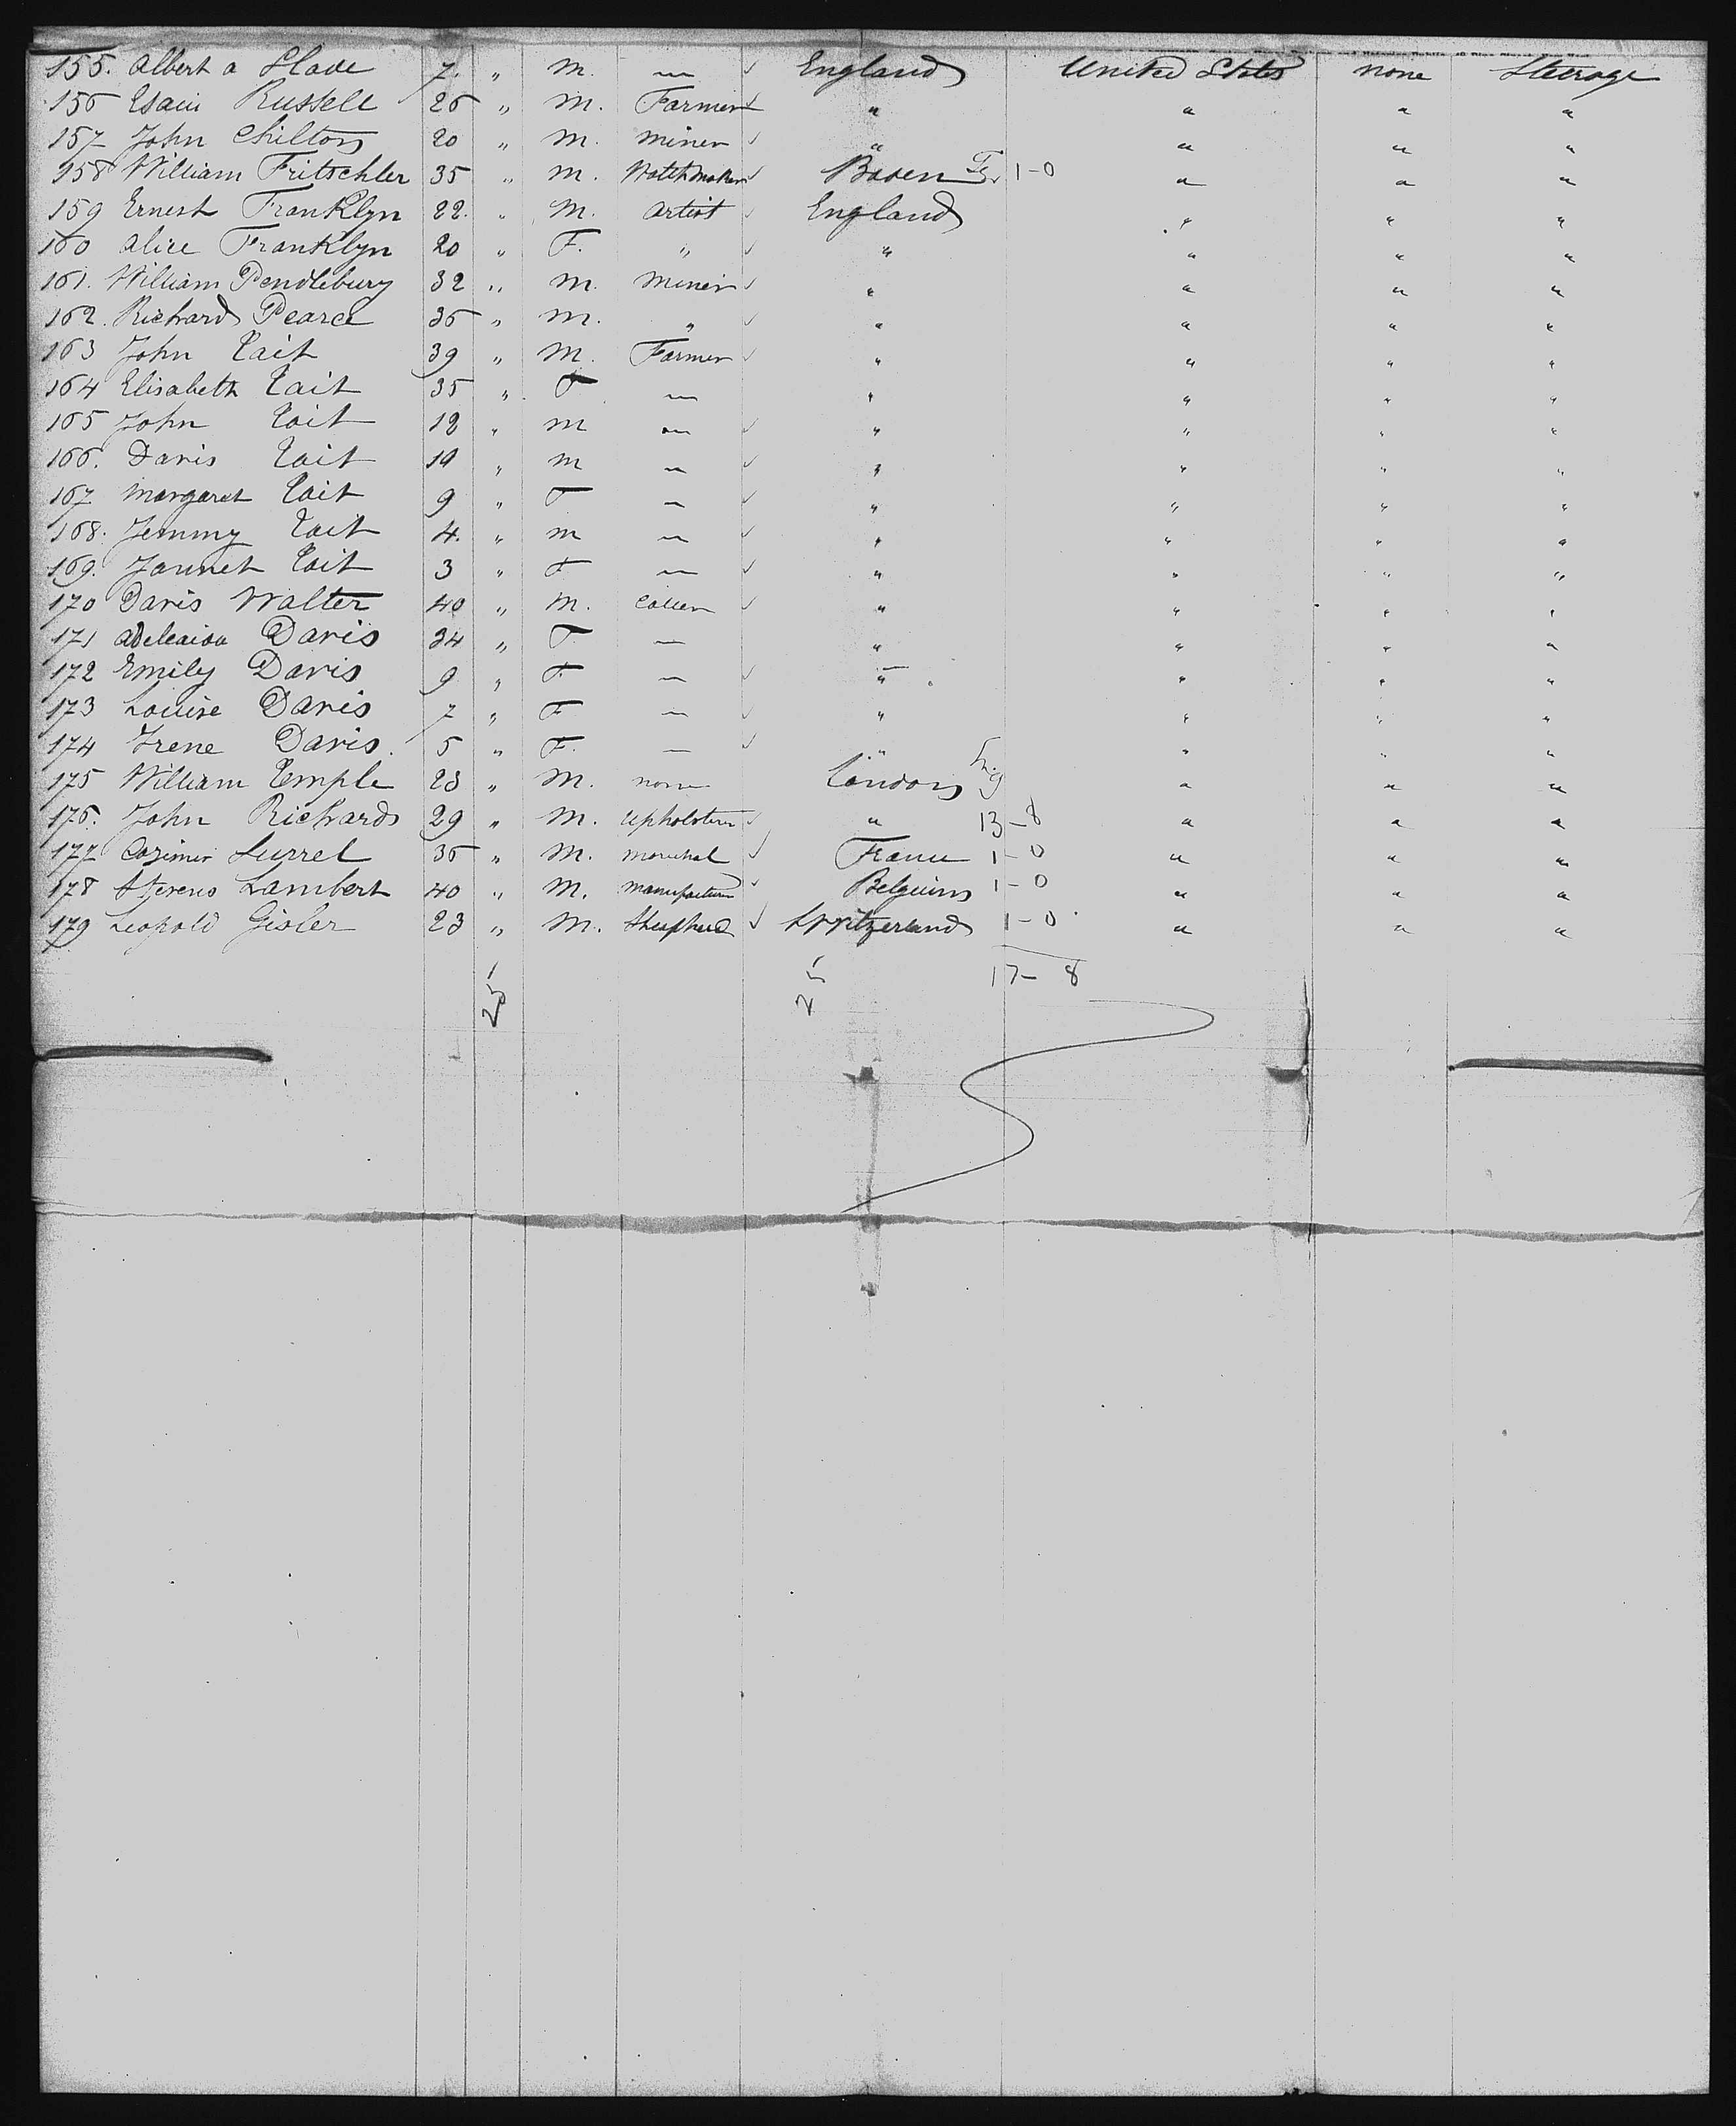 155. Albert a Slade 7. " M. — ✓ England United States none Steerage
156 Esau Russell 26 " M. Farmer ✓ " " " "
157 John Chilton 20 " M. Miner ✓ " " " "
158 William Fritschler 35 " M. Watchmaker ✓ Baden 1-0 " " "
159 Ernest Franklyn 22. " M. Artist ✓ England " " "
160 Alice Franklyn 20 " F. " ✓ " " " "
161. William Pendlebury 32 " M. Miner ✓ " " " "
162. Richard Pearce 36 " M. " ✓ " " " "
163 John Tait 39 " M. Farmer ✓ " " " "
164 Elisabeth Tait 35 " F — " " " "
165 John Tait 12 " M — ✓ " " " "
166. Davis Tait 10 " M — ✓ " " " "
167. Margaret Tait 9 " F — ✓ " " " "
168. Jemmy Tait 4. " M — ✓ " " " "
169. Jannet Tait 3 " F — ✓ " " " "
170 Davis Walter 40 " M. ✓ " " " "
171 Davis 34 " F — " " " "
172 Emily Davis 9 " F. — ✓ " " " "
173 Louise Davis 7 " F — ✓ " " " "
174 Irene Davis. 5 " F. — ✓ " " " "
175 William Temple 23 " M. none London Eng " " "
176. John Richards 29 " M. Upholsterer ✓ " 13-8 " " "
177 Casimir Surrel 36 " M. Marechal ✓ France 1-0 " " "
178 Lambert 40 " M. Manufacturer ✓ Belgium 1-0 " " "
179 Leopold Gisler 23 " M. Sheapherd ✓ Switzerland 1-0 " " "
25 25 17-8